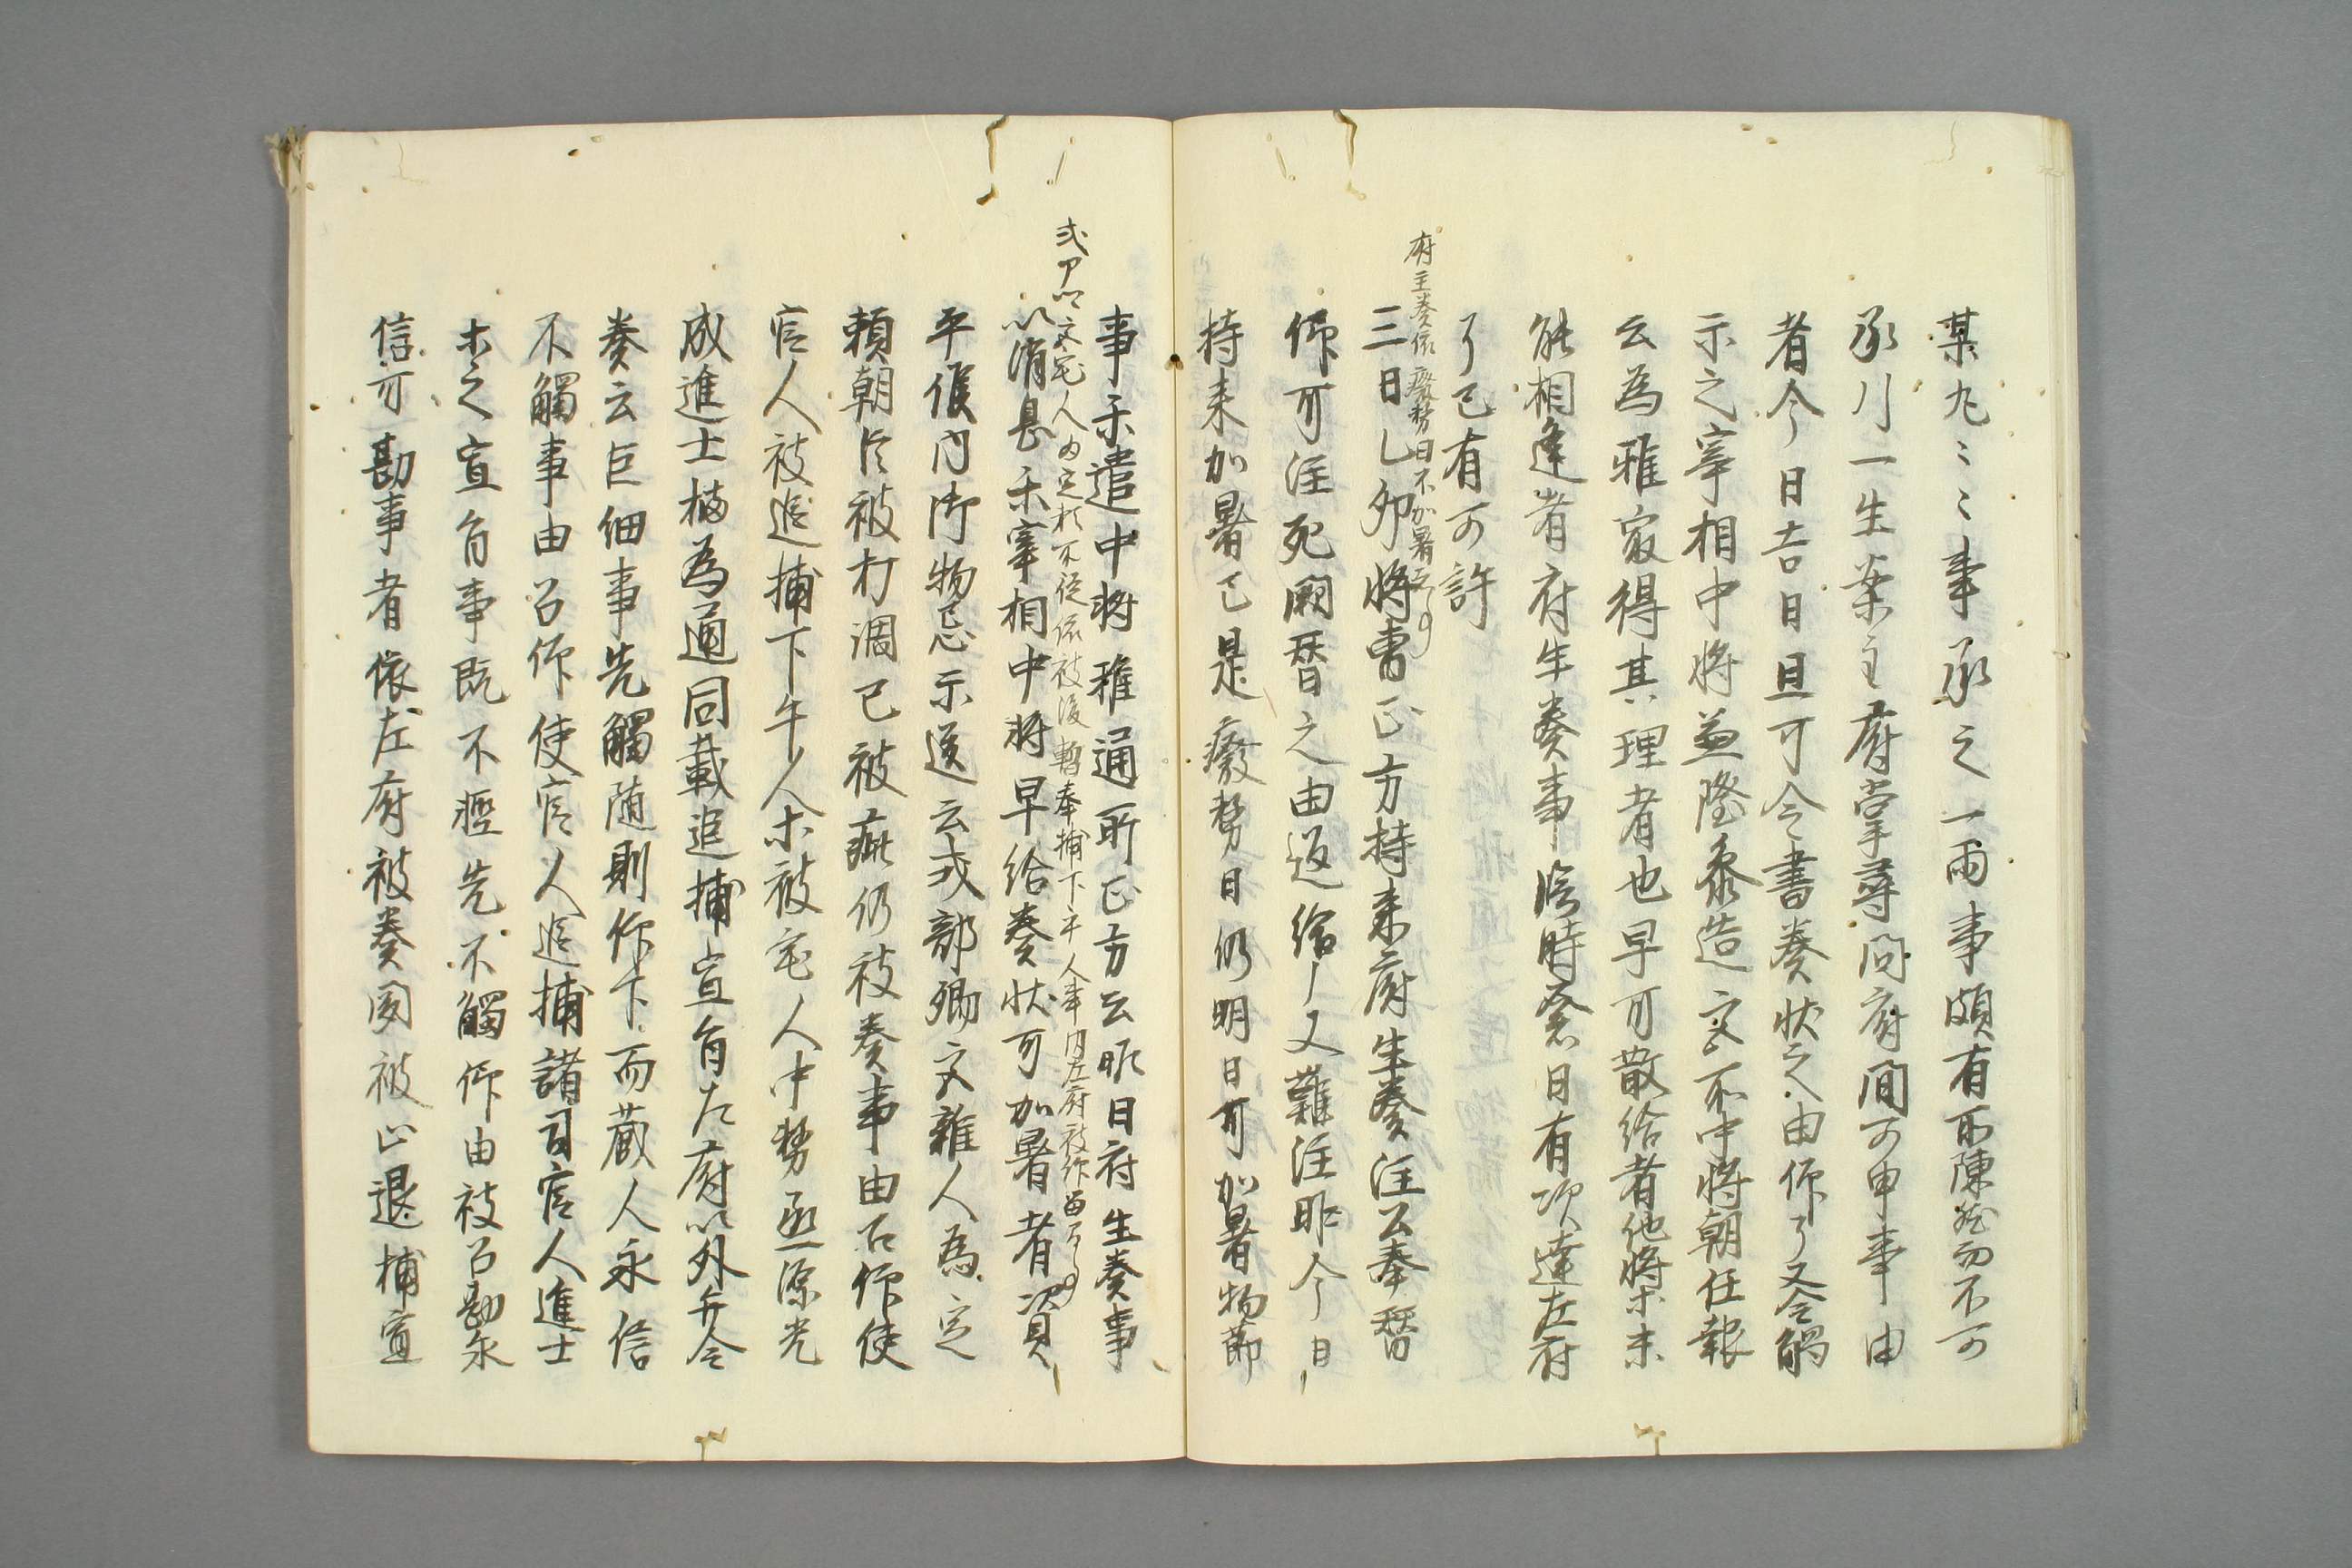 某丸〻〻事承之一両事頗有所陳然而不可
承川一生案主府掌尋問府間可申事由
者今日吉日且可令書奏状之由仰了又令觸
示之宰相中将兼隆参造交不中将朝任報
云為雅家得其理者也早可散給者他将等未
能相逢者府生奏事臨時奏日有次達左府
了已有可許
府生奏依癈務日不加署事
三日乙夘将曹正方持来府生奏注公奉暦
仰可注死闕暦之由返給又難注昨今日
持来加署已是癈務日仍明日可加署物節
事示遣中将雅通所正方云昨日府生奏事
以消息示宰相中将早給奏状可加署者資
式部以文宅人為定頼不従依被凌轢奉捕下手人事内左府被仰
平候内御物忌示送云式部卿交雑人為定
頼朝臣被打調已被疵仍被奏事由召仰使
官人被追捕下手人等被宅人中務丞源光
成進士橘為通同載追捕宣旨左府以外弁令
奏云巨細事先觸随則仰下而蔵人永信
不觸事由召仰使官人追捕諸司官人進士
等之宣旨事既不軽先不觸仰由被召勘永
信可勘事者依左府被奏聞被止退捕宣